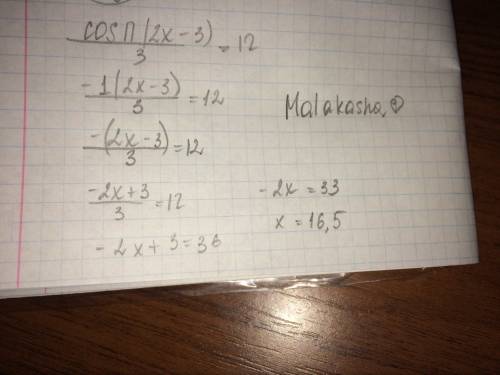 cos П(2x-3)/3 = 12
-1(2x-3)/3 = 12
-(2x-3)/3 = 12
-2x+3/3 = 12
-2x+3=36
Malakasha,
-2x = 33
x = 16,5